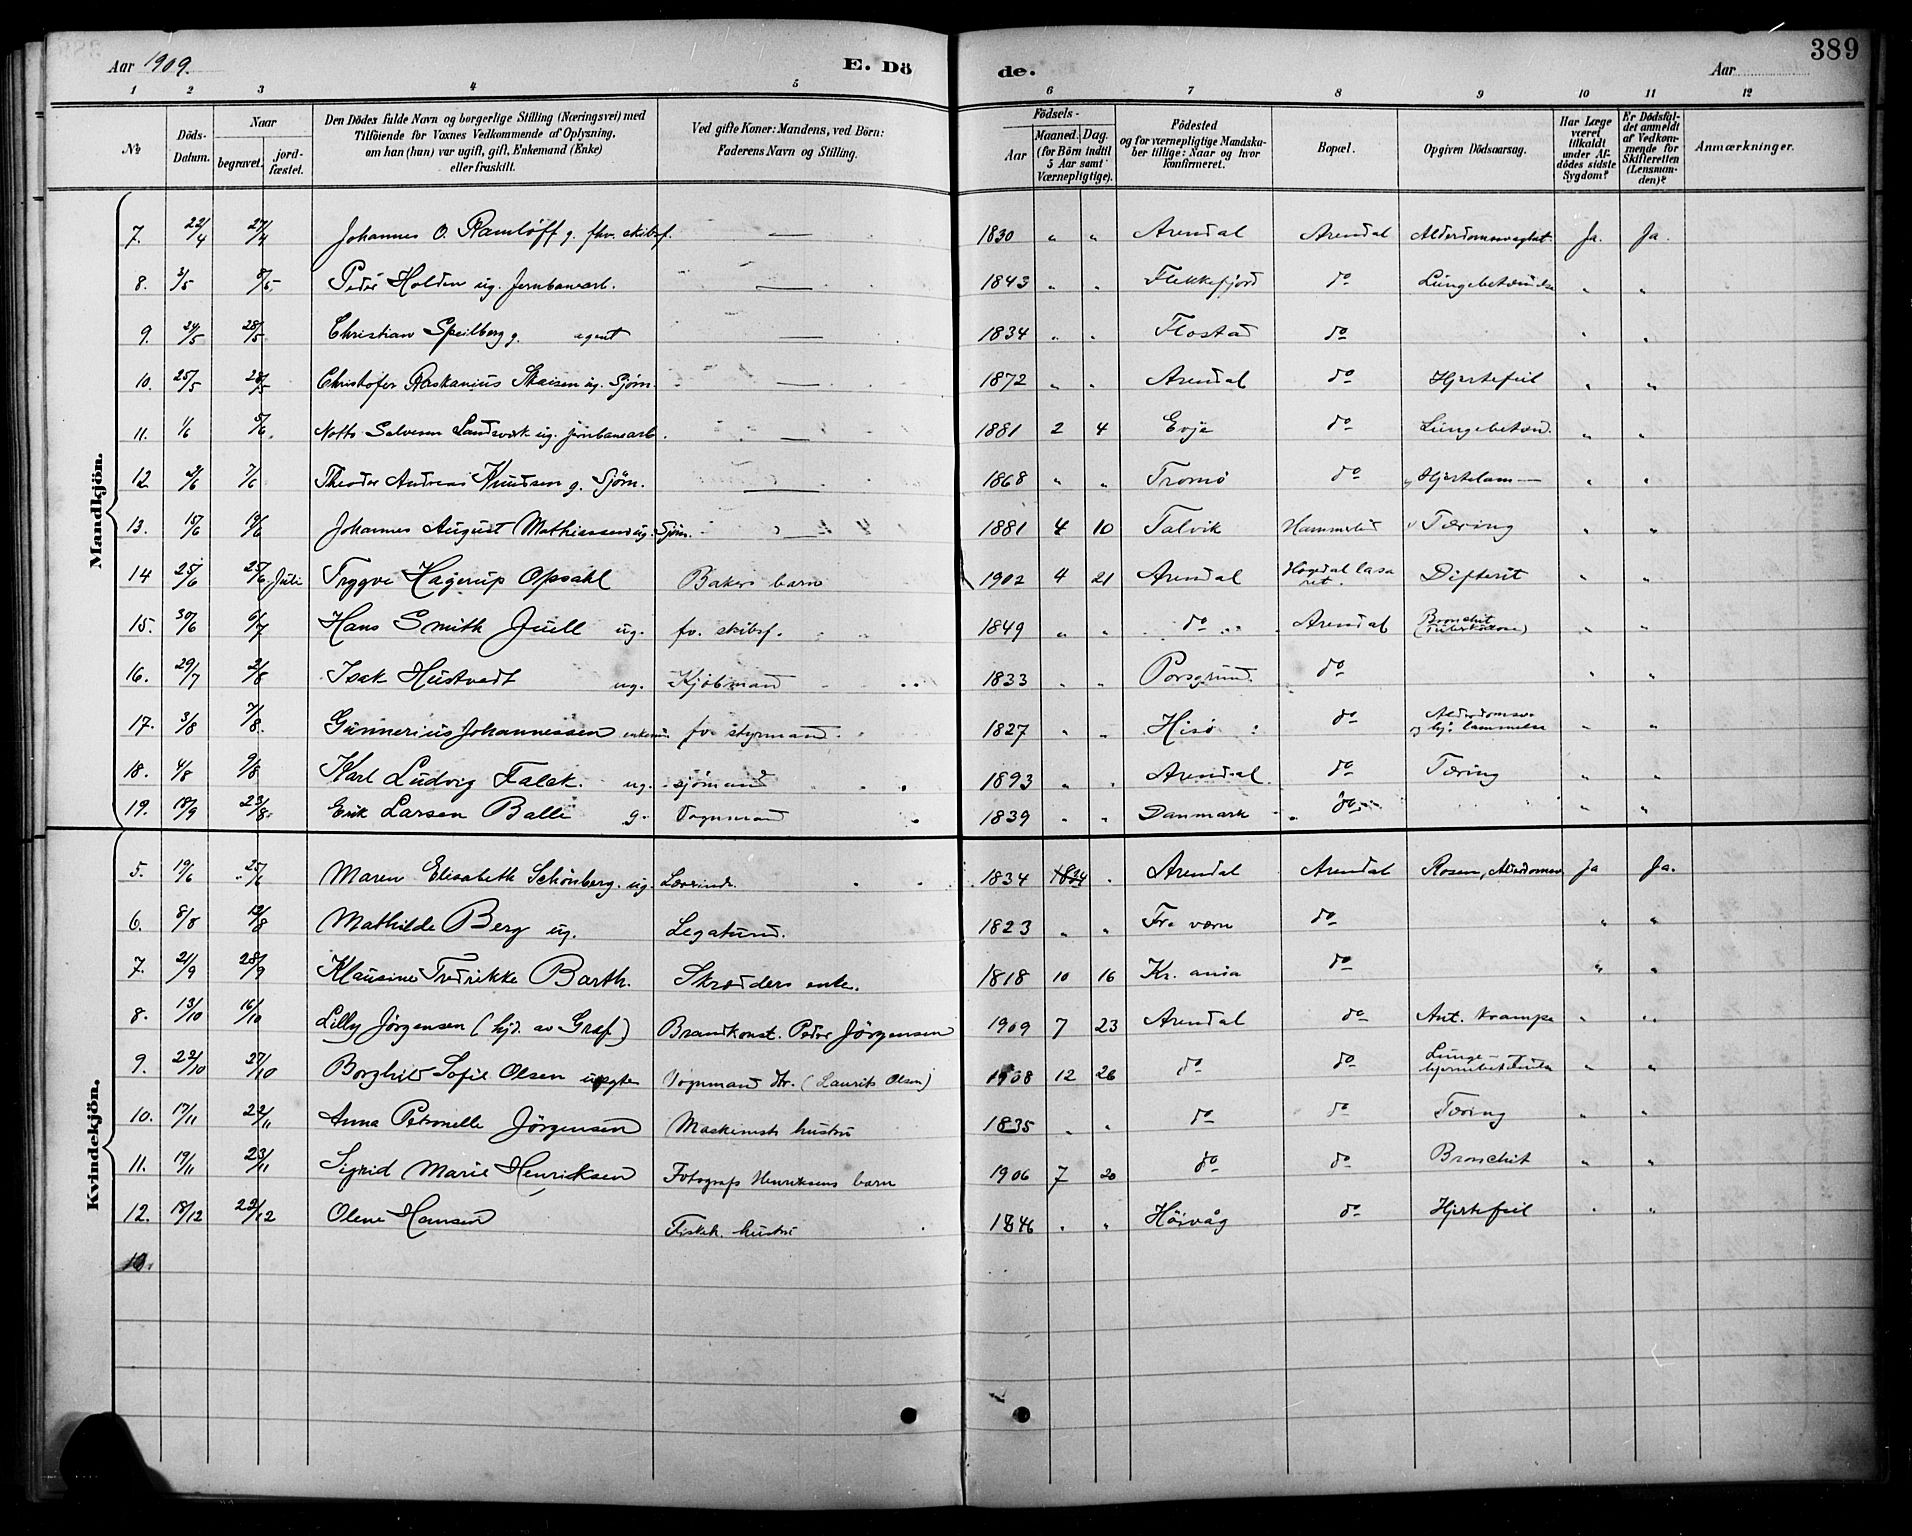 389
Aar 1909. E. Dö de. Aar
1 2 3 4 5 6 7 8 9 10 11 12
No. Döds-Datum. Naar begravet. jordfæstet. Den Dödes fulde Navn og borgerlige Stilling (Næringsvei) med Tilföiende for Voxnes Vedkommende af Oplysning, om han (hun) var ugift, gift, Enkemand (Enke) eller fraskilt. Ved gifte Koner: Mandens, ved Börn: Faderens Navn og Stilling. Födsels- Aar Maaned. Dag. (for Börn indtil 5 Aar samt Værnepligtige). Födested og for værnepligtige Mandskaber tillige: Naar og hvor konfirmeret. Bopæl. Opgiven Dödsaarsag. Har Læge været tilkaldt under Afdödes sidste Sygdom? Er Dödsfaldet anmeldt af Vedkommende for Skifteretten (Lensmanden)? Anmærkninger.
Mandkjön.
7. 22/4 27/4 Johannes O. Ramløff g. fhv. skibsf. — 1830 " " Arendal Arendal Alderdomssvaghet Ja. Ja.
8. 3/5 8/5 Peder Holden ug. Jernbanearb. — 1843 " " Flekkefjord do Lungebetændelse " "
9. 24/5 28/5 Christian Speilberg g. agent — 1834 " " Flostad do " "
10. 25/5 28/5 Christofer Skaisen ug. Sjøm. — 1872 " " Arendal do Hjertefeil " "
11. 1/6 5/6 Salvesen Landsverk ug. jernbanearb. — 1881 2 4 Evje do Lungebetænd. " "
12 2/6 7/6 Theodor Andreas Knudsen g. Sjøm. — 1868 " " Tromø do Hjertelam— " "
13. 15/6 19/6 Johannes August Mathiassen ug. Sjøm. — 1881 4 10 Talvik Hammerfest Tæring " "
14 25/6 25/6 Juli Trygve Hagerup Opsahl Bakers barn 1902 4 21 Arendal lasaret. Difterit " "
15. 30/6 6/7 Hans Smith Juell ug. fv. skibsf. 1849 " " do Arendal Bronchit (Tuberkulose) " "
16. 29/7 2/8 Isak Hustvedt ug. Kjøbmand 1833 " " Porsgrund do " "
17. 3/8 7/8. Gunnerius Johannessen enkem. fv. styrmand 1827 " " Hisø do Alderdomssv. og hj. lammelse " "
18. 4/8 9/8 Karl Ludvig Falck. ug. sjømand 1893 " " Arendal. do Tæring " "
19. 18/9 23/8. Erik Larsen Balle g. Vognmand 1839 " " Danmark do " "
Kvindekjön.
5. 19/6 25/6 Maren Elisabeth Schönberg. ug. Lærerinde. 1834 1834 " Arendal Arendal Rosen, Alderdomssv. Ja Ja.
6. 8/8 12/8 Mathilde Berg ug. Legatund. 1823 " " Fr. værn do " "
7. 21/9 28/9 Klausine Fredrikke Barth. Skrædders enke. 1818 10 16 Kr. ania do " "
8. 13/10 16/10 Lilly Jörgensen (hjd. av Graf) Brandkonst. Peder Jörgensen 1909 7 23 Arendal do Ant. Krampe " "
9. 22/10 27/10 Borghild Sofie Olsen Vognmand dtr. (Laurits Olsen) 1908 12 26 do do Lunge- " "
10. 17/11 22/11 Anna Petronelle Jörgensen Maskinists hustru 1835 " " do do Tæring " "
11. 19/11 23/11 Sigrid Marie Henriksen Fotograf Henriksens barn 1906 7 20 do do Bronchit " "
12. 18/12 22/12 Olene Hansen Fiskeh. hustru 1846 " " Höivåg do Hjertefeil " "